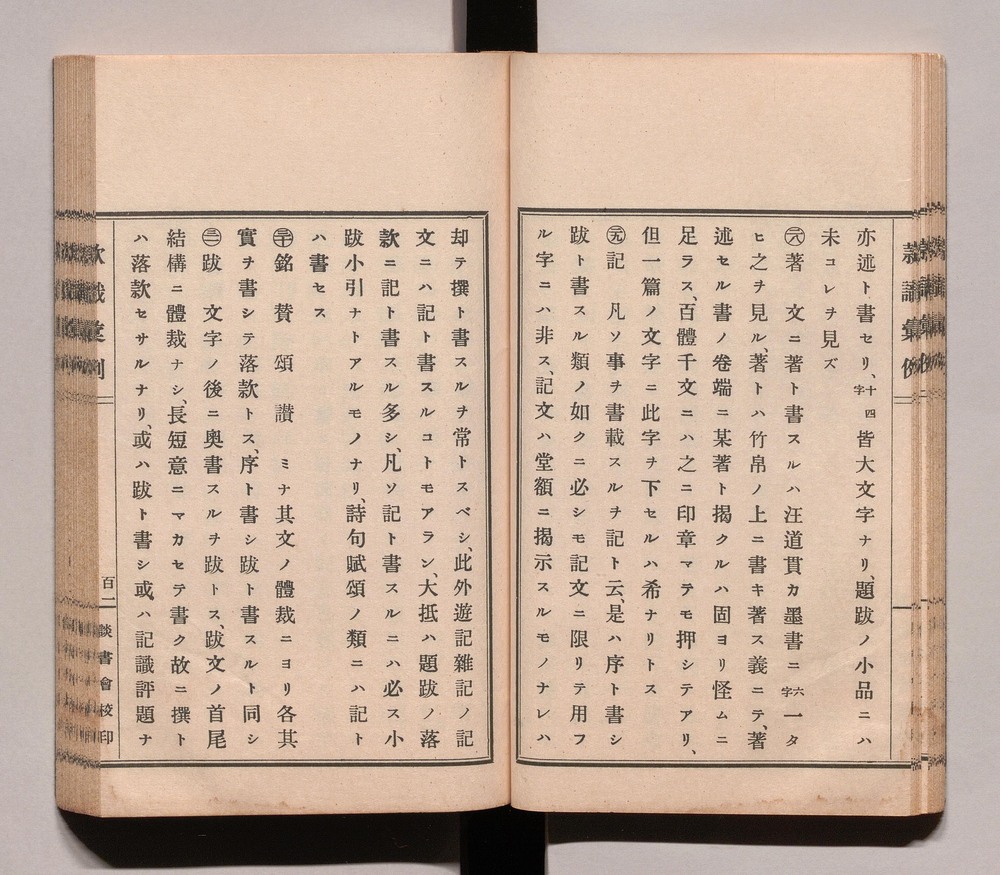 亦述ト書セリ、十四字皆大文字ナリ、題跋ノ小品ニハ
未コレヲ見ズ
㊅著 文ニ著ト書スルハ汪道貫カ墨書ニ六字一タ
ヒ之ヲ見ル、著トハ竹帛ノ上ニ書キ著ス義ニテ、著
述セル書ノ卷端ニ某著ト揭クルハ固ヨリ怪ムニ
足ラス、百體千文ニハ之ニ印章マテモ押シテアリ、
但一篇ノ文字ニ此字ヲ下セルハ希ナリトス
記 凡ソ事ヲ書載スルヲ記ト云、是ハ序ト書シ
跋ト書スル類ノ如クニ必シモ記文ニ限リテ用フ
ル字ニハ非ス、記文ハ堂額ニ揭示スルモノナレハ
却テ撰ト書スルヲ常トスベシ、此外遊記雜記ノ記
文ニハ記ト書スルコトモアラン、大抵ハ題跋ノ落
款ニ記ト書スル多シ、凡ソ記ト書スルニハ必ス小
跋小引ナトアルモノナリ、詩句賦頌ノ類ニハ記ト
ハ書セス
銘 贊 頌 讃 ミナ其文ノ體裁ニヨリ各其
實ヲ書シテ落款トス、序ト書シ跋ト書スルト同シ
跋 文字ノ後ニ奧書スルヲ跋トス、跋文ノ首尾
結構ニ體裁ナシ、長短意ニマカセテ書ク故ニ撰ト
ハ落款セサルナリ、或ハ跋ト書シ或ハ記識評題ナ
款識彙例
百二
談書會校印